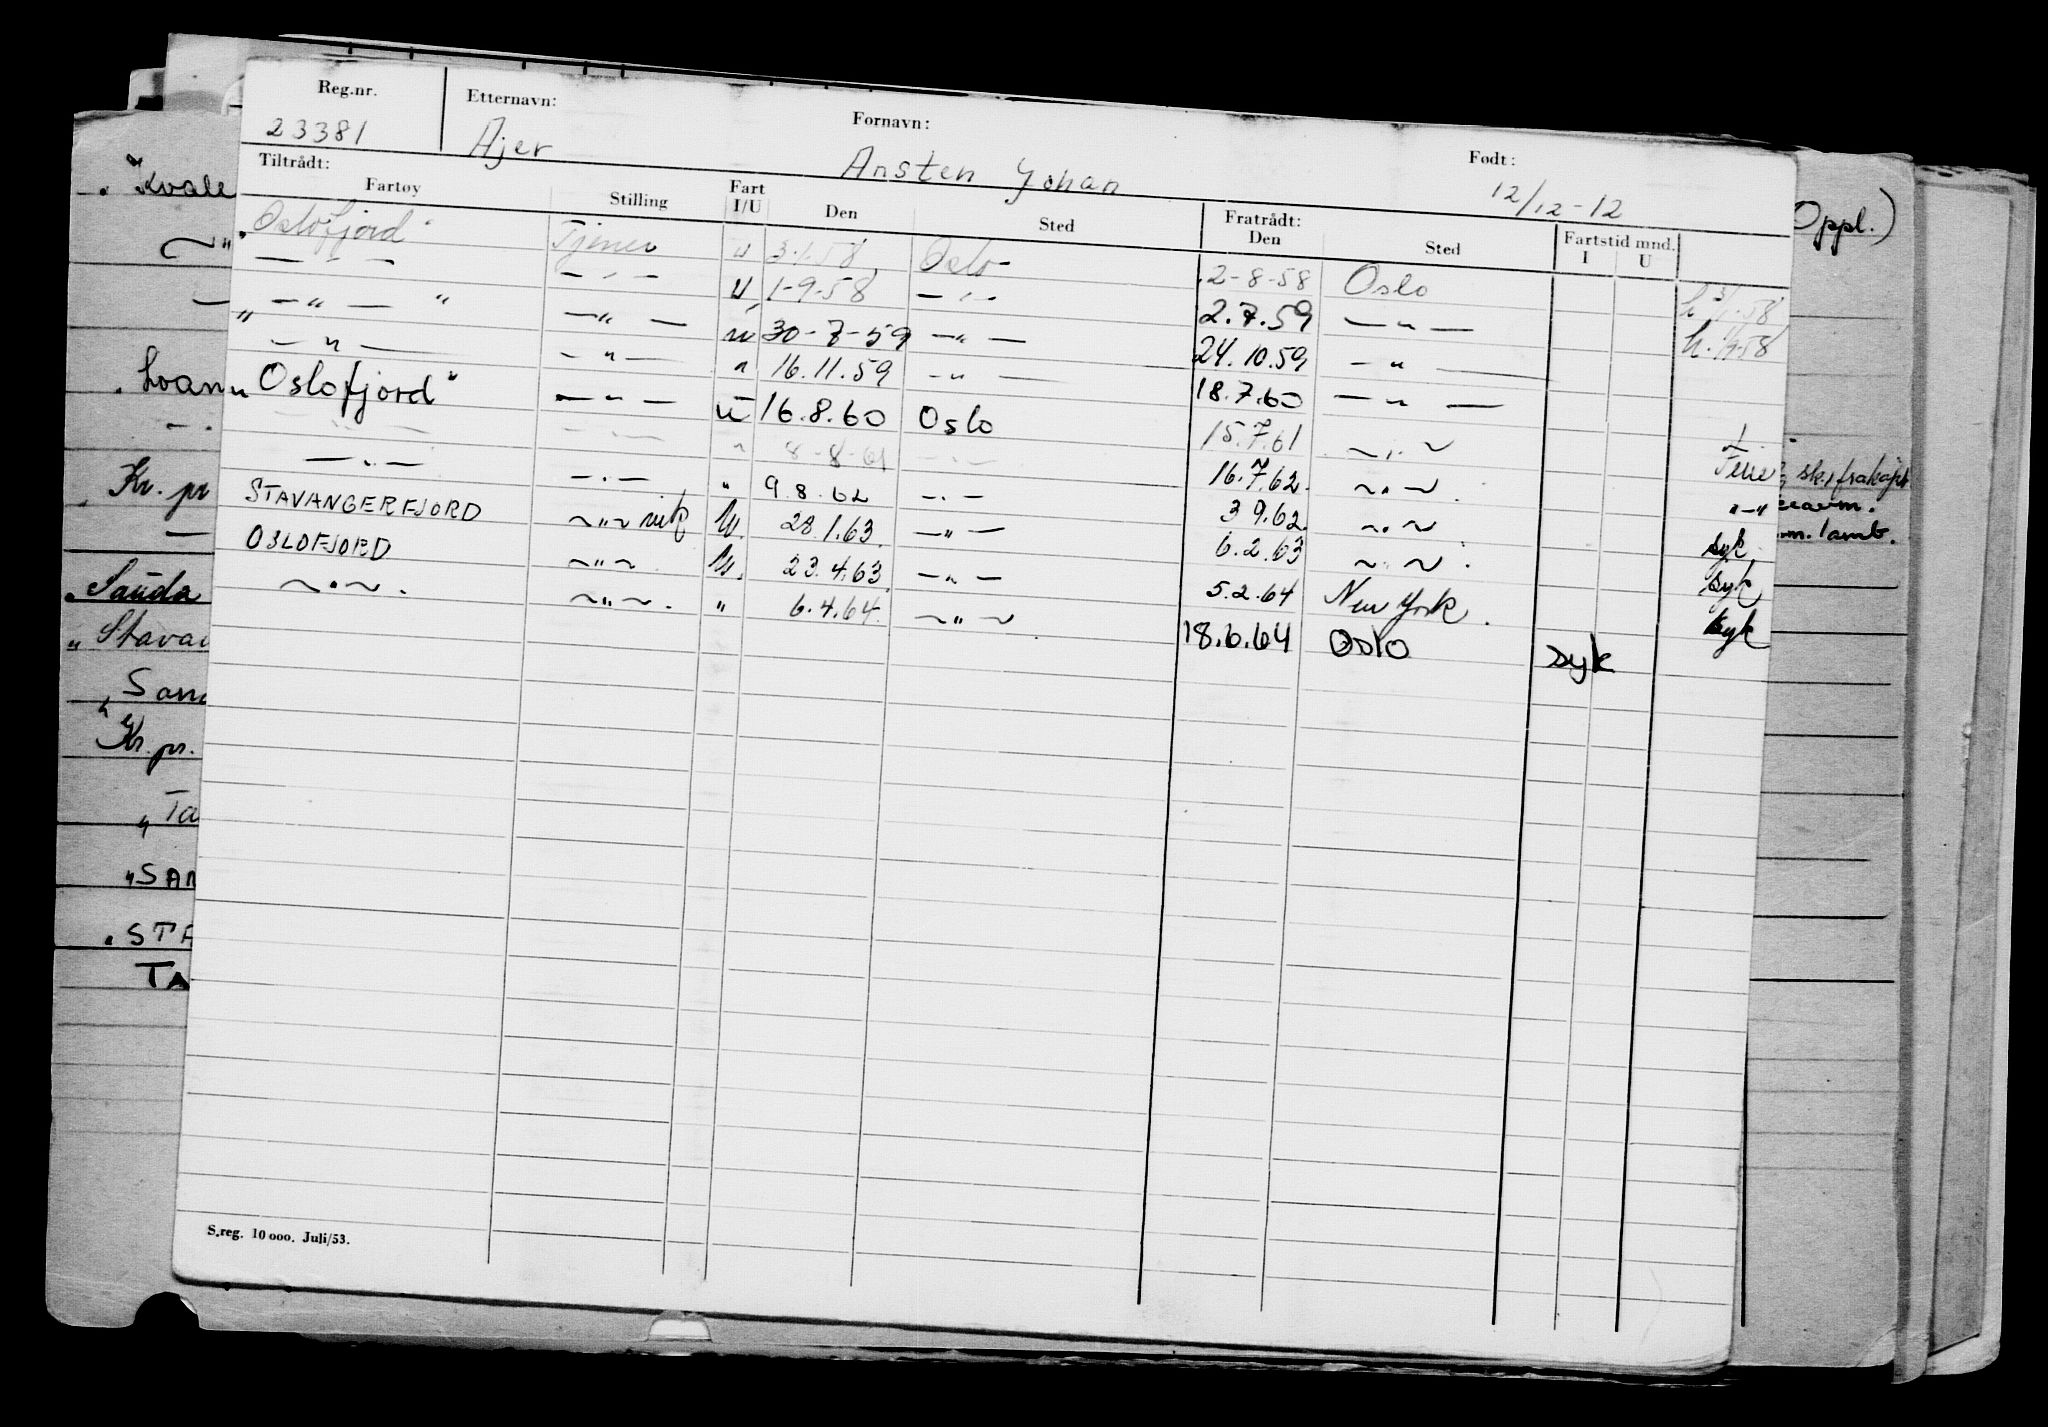 Reg.nr. Etternavn: Fornavn: Født:
23381 Ajer Ansten Johan 12/12-12
Tiltrådt: Fratrådt: Fartstid mnd.
Fartøy Stilling Fart I/U Den Sted Den Sted I U
"Oslofjord" Tjener u 3.1.58 Oslo 2-8-58 Oslo h 3/1-58
— " — — " — U 1-9-58 — " — 2.7.59 — " — h. 1/9-58
" — " — " — " — u 30-7-59 — " — 24.10.59 — " —
— " — — " — " 16.11.59 — " — 18.7.60 — " —
"Oslofjord" — " — u 16.8.60 Oslo 15.7.61 — " —
— " — — " — " 8-8-61 — " — 16.7.62. — " — . Ferie
— " — — " — " 9.8.62 — " — 3 9.62. — " — . — " —
STAVANGERFJORD — " — vik U. 28.1.63. — " — 6.2.63 — " — . syk.
OSLOFJORD — " — . U. 23.4.63. — " — 5.2.64 New York . syk
— " — . — " — . " 6.4.64. — " — . 18.6.64 Oslo syk syk
S.reg. 10 000. Juli/53.
"Kvale
Oppl.)
Kr. pr
sk, frakapt
m. lamb.
"Sauda
"Stava
"San
Kr. pr.
"Ta
"SAN
"STA
TA